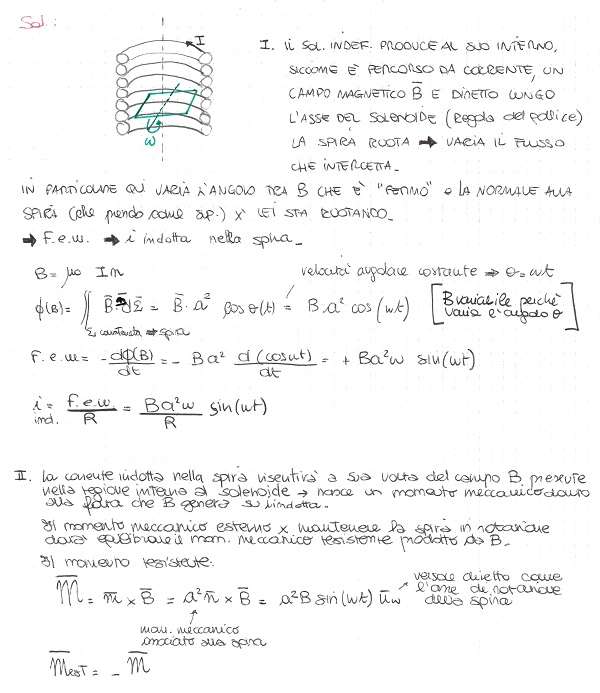 Sol:
I
ω
I. il SOL. INDEF. PRODUCE AL SUO INTERNO,
SICCOME È PERCORSO DA CORRENTE, UN
CAMPO MAGNETICO B̄ E DIRETTO LUNGO
L'ASSE DEL SOLENOIDE (Regola del pollice)
LA SPIRA RUOTA → VARIA IL FLUSSO
CHE INTERCETTA_
IN PARTICOLARE QUI VARIA L'ANGOLO TRA B CHE È "FERMO" e LA NORMALE ALLA
SPIRA (che prendo come sup.) X LEI STA RUOTANDO_
→ F.e.m. → i indotta nella spira_
B = μ₀ I n
velocità angolare costante ⇒ θ = ωt
φ(B) = ∬ B̄·dΣ̄ = B̄·a² cos θ(t) = B·a² cos(ωt) [B variabile perché varia l'angolo θ]
Σ → spira
F.e.m = -dφ(B)/dt = - Ba² d(cosωt)/dt = + Ba²ω sin(ωt)
i ind. = F.e.m./R = Ba²ω/R sin(ωt)
II. la corrente indotta nella spira risentirà a sua volta del campo B presente
nella regione interna al solenoide → nasce un momento meccanico dovuto
alla forza che B genera su i indotta_
Il momento meccanico esterno x mantenere la spira in rotazione
dovrà equilibrare il mom. meccanico resistente prodotto da B_
Il momento resistente:
M̄ = m̄ × B̄ = a² n̄ × B̄ = a²B sin(ωt) ū_ω
versore diretto come
l'asse di rotazione
della spira
mom. meccanico
associato alla spira
M̄est = - M̄